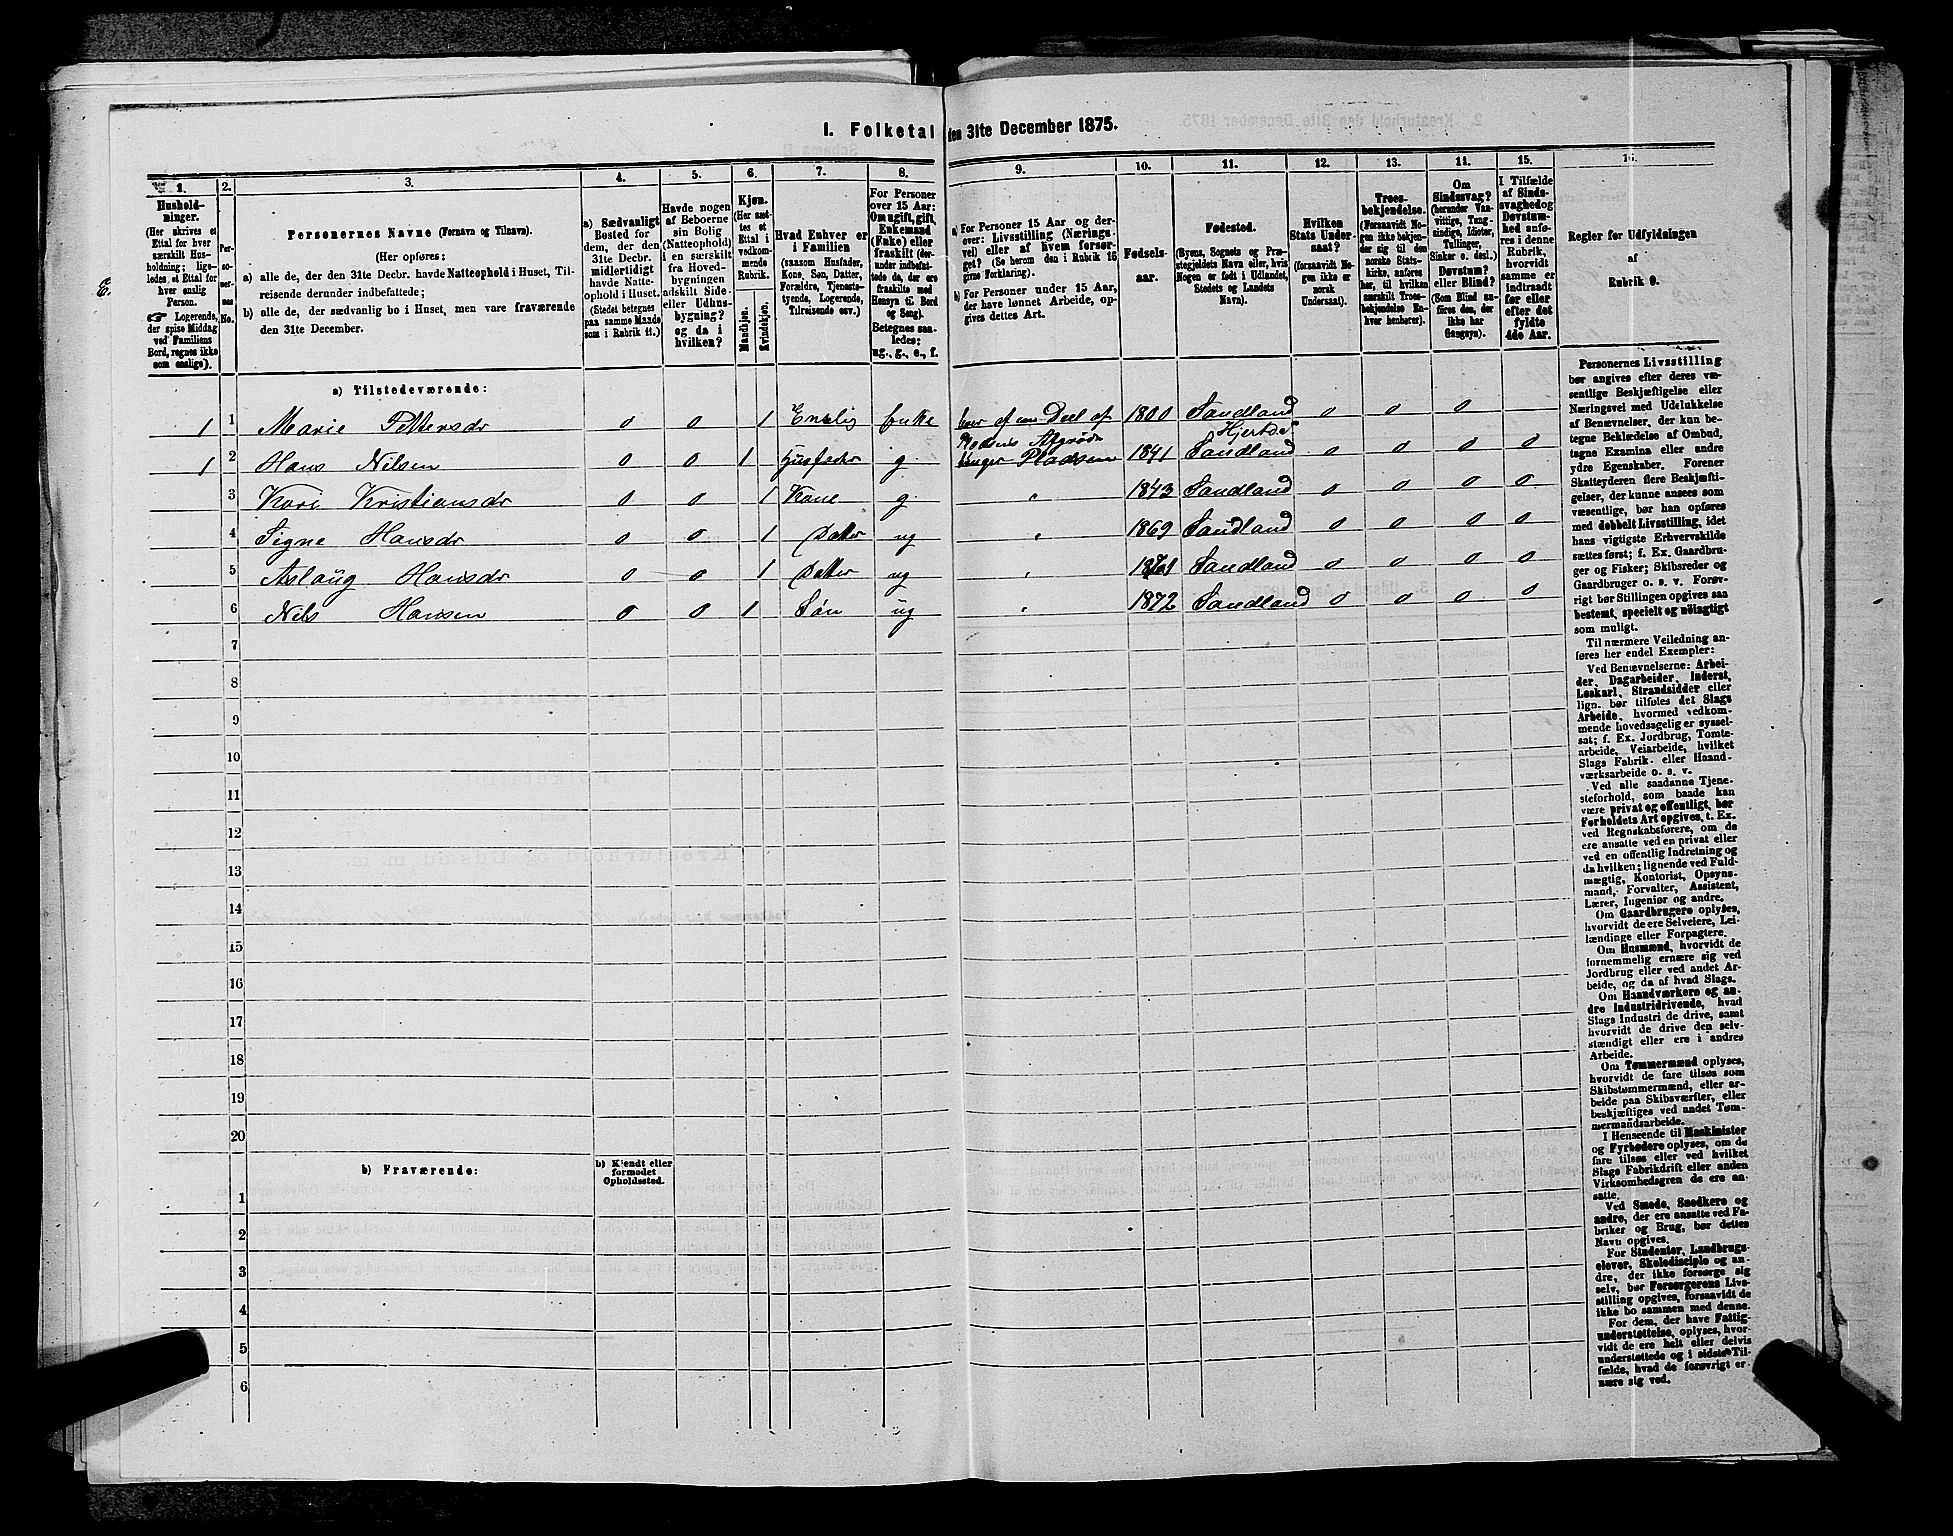 I. Folketal den 31te December 1875.
1.
2.
3.
4.
5.
6.
7.
8.
9.
10.
11.
12.
13.
14.
15.
16.
Hushold-
ninger.
(Her skrives et
Ettal for hver
særskilt Hus-
holdning; lige-
ledes et Ettal for
hver enslig
Person.
☛ Logerende,
der spise Middag
ved Familiens
Bord, regnes ikke
som enslige).
Per-
so-
ner-
nes
No.
Personernes Navne (Fornavn og Tilnavn).
(Her opføres:
a) alle de, der den 31te Decbr. havde Natteophold i Huset, Til-
reisende derunder indbefattede;
b) alle de, der sædvanlig bo i Huset, men vare fraværende
den 31te December.
a) Sædvanligt
Bosted for
dem, der den
31te Decbr.
midlertidigt
havde Natte-
ophold i Huset.
(Stedet betegnes
paa samme Maade
som i Rubrik 11.)
Havde nogen
af Beboerne
sin Bolig
(Natteophold)
i en særskilt
fra Hoved-
bygningen
adskilt Side-
eller Udhus-
bygning?
og da i
hvilken?
Kjøn.
(Her sæt-
tes et
Ettal i
vedkom-
mende
Rubrik.
Mandkjøn.
Kvindekjøn.
Hvad Enhver er
i Familien
(saasom Husfader,
Kone, Søn, Datter,
Forældre, Tjeneste-
tyende, Logerende,
Tilreisende osv.)
For Personer
over 15 Aar:
Om ugift, gift,
Enkemand
(Enke) eller
fraskilt (der-
under indbefat-
tede de, der ere
fraskilte med
Hensyn til Bord
og Seng).
Betegnes saa-
ledes:
ug., g., e., f.
a) For Personer 15 Aar og der-
over: Livsstilling (Nærings-
vei) eller af hvem forsør-
get? (Se herom den i Rubrik 16
givne Forklaring).
b) For Personer under 15 Aar,
der have lønnet Arbeide, op-
gives dettes Art.
Fødsels-
aar.
Fødested.
(Byens, Sognets og Præ-
stegjeldets Navn eller, hvis
Nogen er født i Udlandet,
Stedets og Landets
Navn).
Hvilken
Stats Under-
saat?
(forsaavidt No-
gen ikke er
norsk
Undersaat).
Troes-
bekjendelse.
(Forsaavidt No-
gen ikke bekjen-
der sig til den
norske Stats-
kirke, anføres
her, til hvilken
særskilt Troes-
bekjendelse En-
hver henhører).
Om
Sindssvag?
(herunder Van-
vittige, Tung-
sindige, Idioter,
Tullinger,
Sinker o. desl.)
Døvstum?
eller Blind?
(Som Blind an-
føres den, der
ikke har
Gangsyn).
I Tilfælde
af Sinds-
svaghed og
Døvstum-
hed anfø-
res i denne
Rubrik,
hvorvidt
samme er
indtraadt
før eller
efter det
fyldte
4de Aar.
Regler for Udfyldningen
af
Rubrik 9.
a) Tilstedeværende:
1 1 Marie Pettersdr 0 0 1 Enslig Enke lever af en Deel af 1800 Sandland 0 0 0
Pladsens Afgrøde Hjertdal
1 2 Hans Nilsen 0 0 1 Husfader g. bruger Pladsen 1841 Sandland 0 0 0 0
3 Kari Kristiansdr 0 0 1 Kone g. " 1843 Sandland 0 0 0 0
4 Signe Hansdr 0 0 1 Datter ug " 1869 Sandland 0 0 0 0
5 Aslaug Hansdr 0 0 1 Datter ug " Sandland 0 0 0 0
6 Nils Hansen 0 0 1 Søn ug " 1872 Sandland 0 0 0 0
7
8
9
10
11
12
13
14
15
16
17
18
19
20
b) Fraværende:
b) Kjendt eller
formodet
Opholdssted.
1
2
3
4
5
6
Personernes Livsstilling
bør angives efter deres væ-
sentlige Beskjæftigelse eller
Næringsvei med Udelukkelse
af Benævnelser, der kun be-
tegne Beklædelse af Ombud,
tagne Examina eller andre
ydre Egenskaber. Forener
Skatteyderen flere Beskjæfti-
gelser, der kunne ansees som
væsentlige, bør han opføres
med dobbelt Livsstilling, idet
hans vigtigste Erhvervskilde
sættes først; f. Ex. Gaardbru-
ger og Fisker; Skibsreder og
Gaardbruger o. s. v. Forøv-
rigt bør Stillingen opgives saa
bestemt, specielt og nøiagtigt
som muligt.
Til nærmere Veiledning an-
føres her endel Exempler:
Ved Benævnelserne: Arbei-
der, Dagarbeider, Inderst,
Løskarl, Strandsidder eller
lign. bør tilføies det Slags
Arbeide, hvormed vedkom-
mende hovedsagelig er syssel-
sat; f. Ex. Jordbrug, Tomte-
arbeide, Veiarbeide, hvilket
Slags Fabrik- eller Haand-
værksarbeide o. s. v.
Ved alle saadanne Tjene-
steforhold, som baade kan
være privat og offentligt, bør
Forholdets Art opgives, t. Ex.
ved Regnskabsførere, om de
ere ansatte ved en privat eller
ved en offentlig Indretning og
da hvilken; lignende ved Fuld-
mægtig, Kontorist, Opsyns-
mand, Forvalter, Assistent,
Lærer, Ingeniør og andre.
Om Gaardbrugere oplyses,
hvorvidt de ere Selveiere, Lei-
lændinge eller Forpagtere.
Om Husmænd, hvorvidt de
fornemmelig ernære sig ved
Jordbrug eller ved andet Ar-
beide, og da af hvad Slags.
Om Haandværkere og an-
dre Industridrivende, hvad
Slags Industri de drive, samt
hvorvidt de drive den selv-
stændigt eller ere i andres
Arbeide.
Om Tømmermænd oplyses,
hvorvidt de fare tilsøs som
Skibstømmermænd, eller ar-
beide paa Skibsværfter, eller
beskjæftiges ved andet Tøm-
mermandsarbeide.
I Henseende til Maskinister
og Fyrbødere oplyses, om de
fare tilsøs eller ved hvilket
Slags Fabrikdrift eller anden
Virksomhedsgren de ere an-
satte.
Ved Smede, Snedkere og
andre, der ere ansatte ved Fa-
briker og Brug, bør dettes
Navn opgives.
For Studenter, Landbrugs-
elever, Skoledisciple og an-
dre, der ikke forsørge sig
selv, bør Forsørgerens Livs-
stilling opgives, forsaavidt de
ikke bo sammen med denne.
For dem, der have Fattig-
understøttelse, oplyses, hvor-
vidt de ere helt eller delvis
understøttede og i sidste Til-
fælde, hvad de forøvrigt er-
nære sig ved.